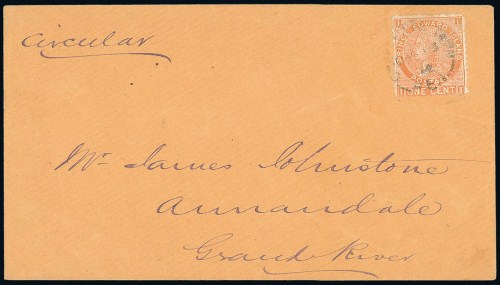 Circular
1 1
PRINCE EDWARD ISLAND
POSTAGE
1 ONE CENT 1
Mr. James Johnstone
Annandale
Grand River